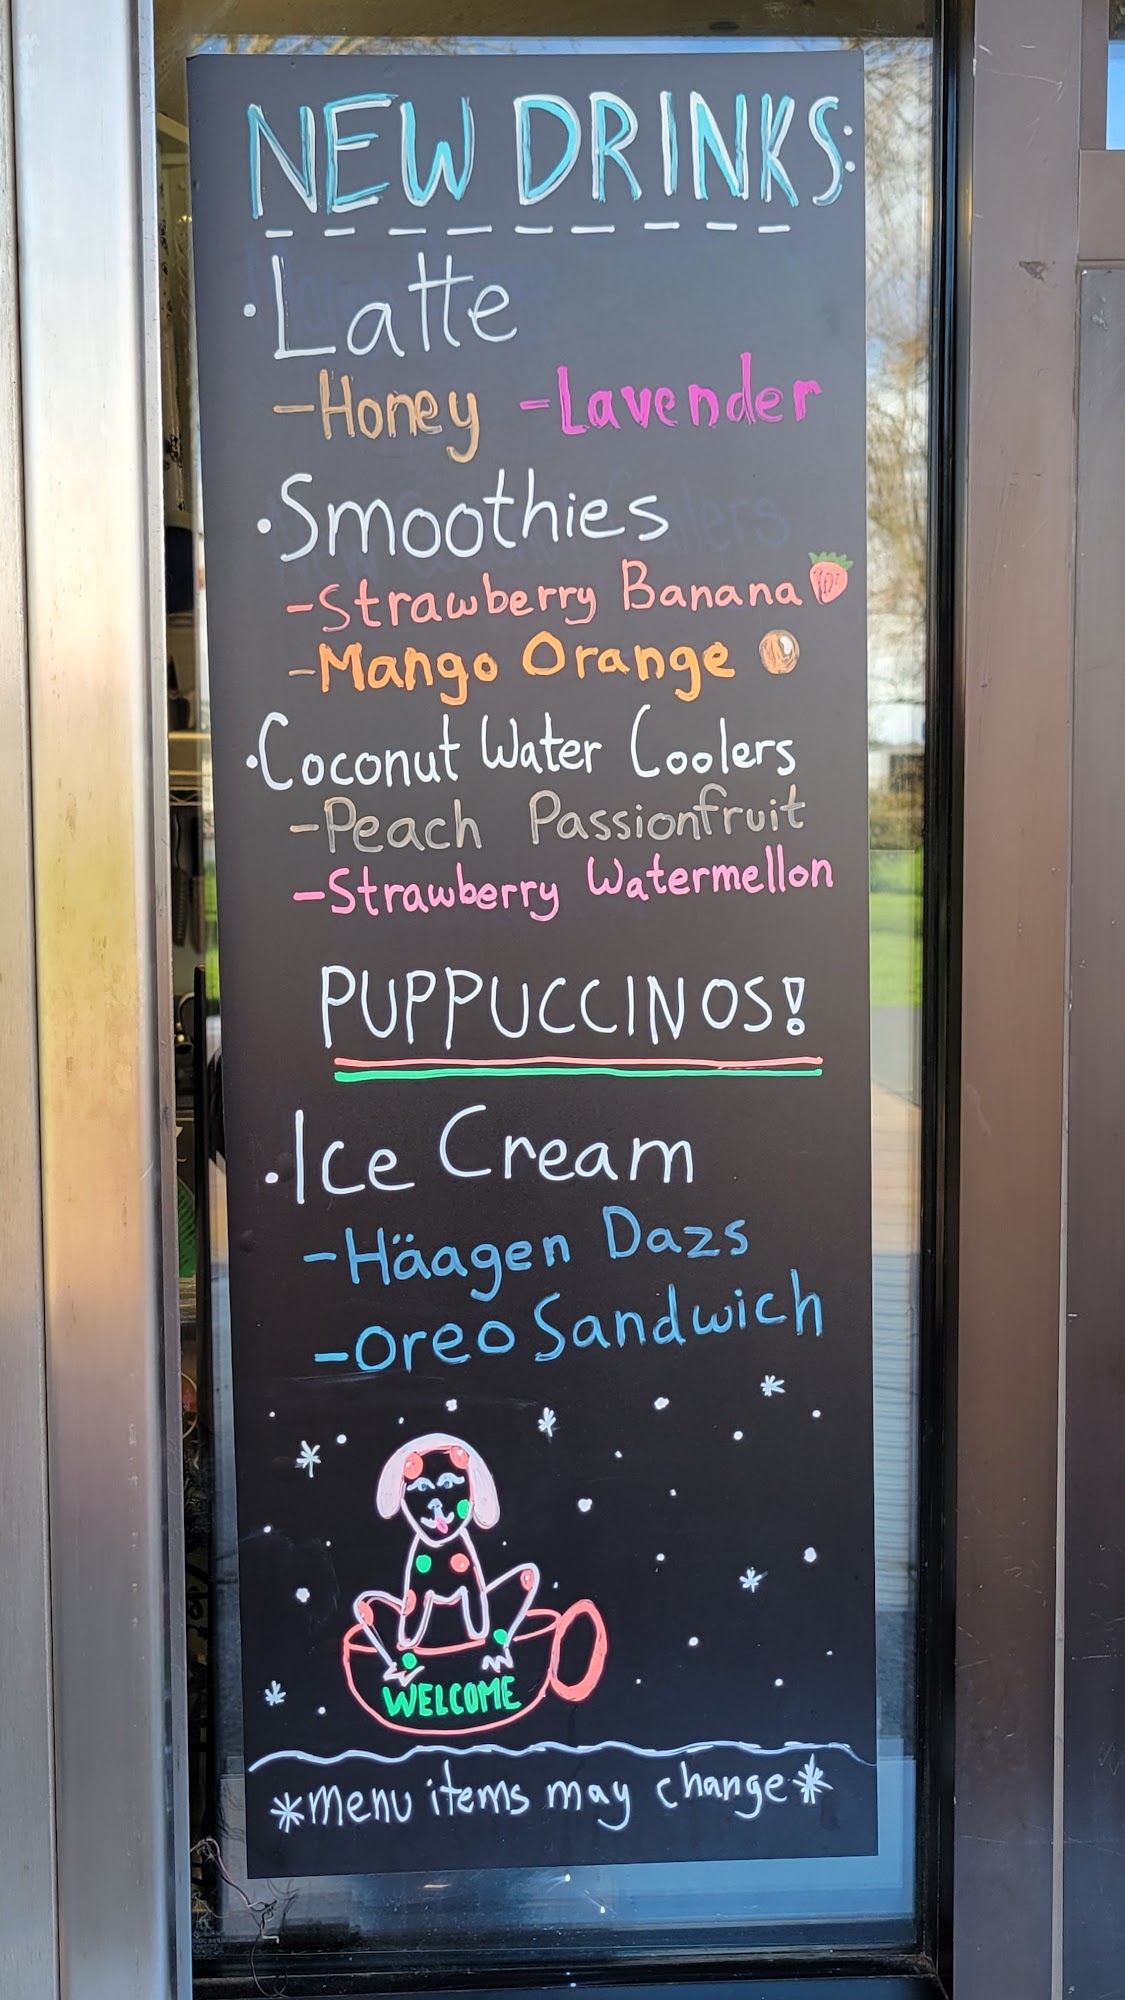 NEW DRINKS:
· Latte
-Honey -Lavender
· Smoothies
-Strawberry Banana
-Mango Orange
· Coconut Water Coolers
-Peach Passionfruit
-Strawberry Watermellon
PUPPUCCINOS!
· Ice Cream
-Häagen Dazs
-Oreo Sandwich
WELCOME
*menu items may change*